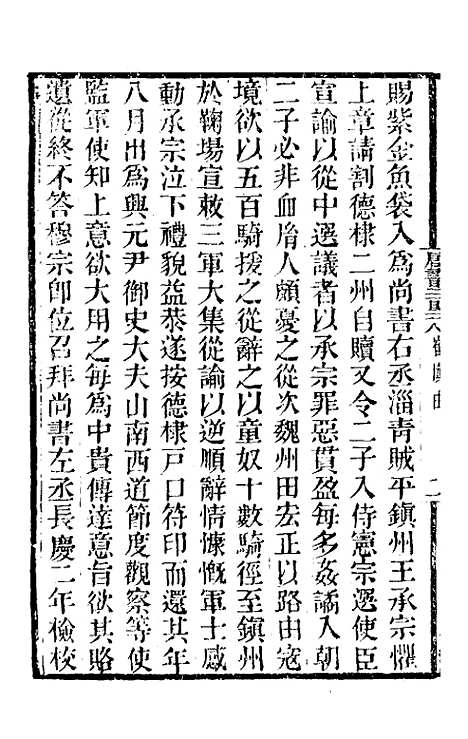 賜紫金魚袋入為尚書右丞淄青賊平鎮州王承宗懼
上章請割德棣二州自贖又令二子入侍憲宗選使臣
宣諭以從中選議者以承宗罪惡貫盈每多姦譎入朝
二子必非血胤人頗憂之從次魏州田宏正以路由寇
境欲以五百騎援之從辭之以童奴十數騎徑至鎮州
於鞠場宣敕三軍大集從諭以逆順辭情慷慨軍士感
動承宗泣下禮貌益恭遂按德棣戶口符印而還其年
八月出為興元尹御史大夫山南西道節度觀察等使
監軍使知上意欲大用之每為中貴傳達意旨欲其賂
遺從終不答穆宗即位召拜尚書左丞長慶二年檢校